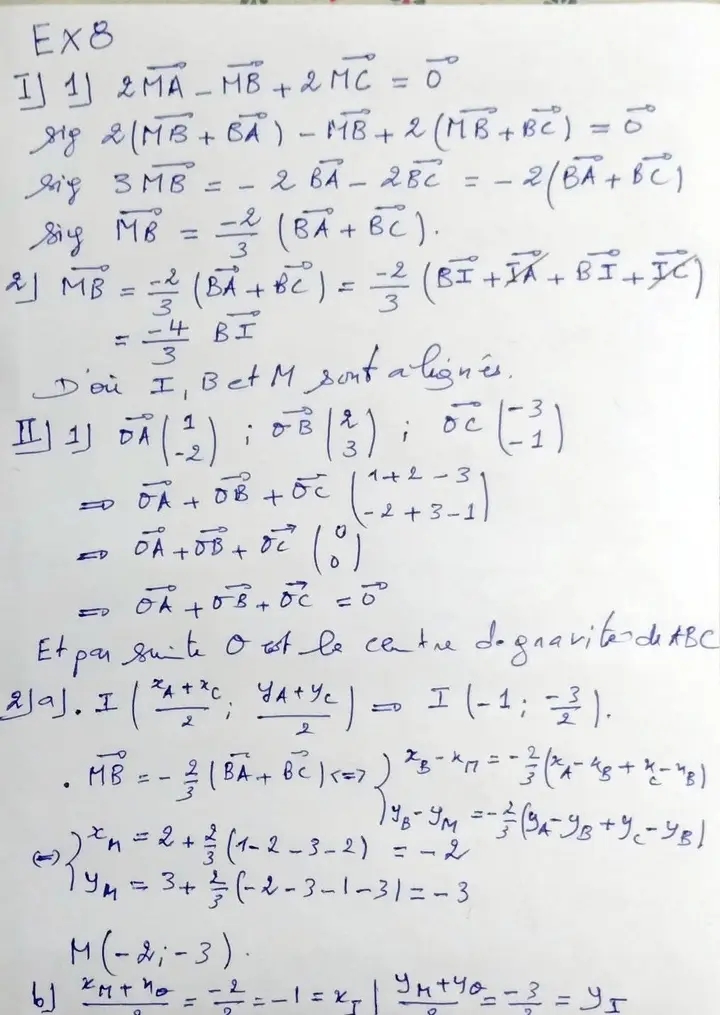 EX8
I] 1] 2MA⃗ - MB⃗ + 2MC⃗ = 0⃗
sig 2(MB⃗ + BA⃗) - MB⃗ + 2(MB⃗ + BC⃗) = 0⃗
sig 3MB⃗ = - 2 BA⃗ - 2BC⃗ = - 2(BA⃗ + BC⃗)
sig MB⃗ = -2/3 (BA⃗ + BC⃗).
2] MB⃗ = -2/3 (BA⃗ + BC⃗) = -2/3 (BI⃗ + IA⃗ + BI⃗ + IC⃗)
= -4/3 BI⃗
D'où I, B et M sont alignés.
II] 1] OA⃗ (1 -2) ; OB⃗ (2 3) ; OC⃗ (-3 -1)
⇒ OA⃗ + OB⃗ + OC⃗ (1+2-3 -2+3-1)
⇒ OA⃗ + OB⃗ + OC⃗ (0 0)
⇒ OA⃗ + OB⃗ + OC⃗ = 0⃗
Et par suite O est le centre de gravité de ABC
2]a]. I ((xA + xC)/2 ; (yA + yC)/2) ⇒ I (-1 ; -3/2).
. MB⃗ = - 2/3 (BA⃗ + BC⃗) ⇔ { xB - xM = -2/3 (xA - xB + xC - xB)
yB - yM = -2/3 (yA - yB + yC - yB)
⇔ { xM = 2 + 2/3 (1 - 2 - 3 - 2) = -2
yM = 3 + 2/3 (-2 - 3 - 1 - 3) = -3
M(-2 ; -3).
b] (xM + xO)/2 = -2/2 = -1 = xI | (yM + yO)/2 = -3/2 = yI